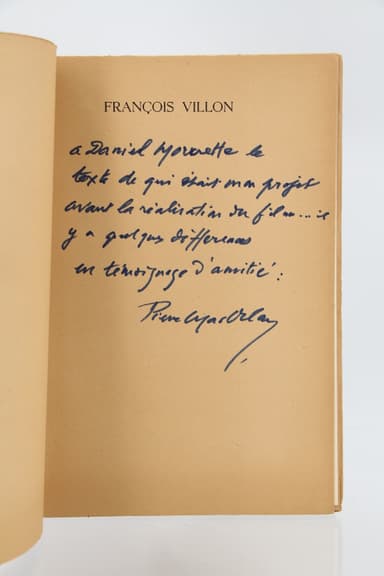 FRANÇOIS VILLON
a Daniel le
texte de qui était mon projet
avant la réalisation du film... il
y a quelques différences
en témoignage d'amitié :
Pierre Mac Orlan